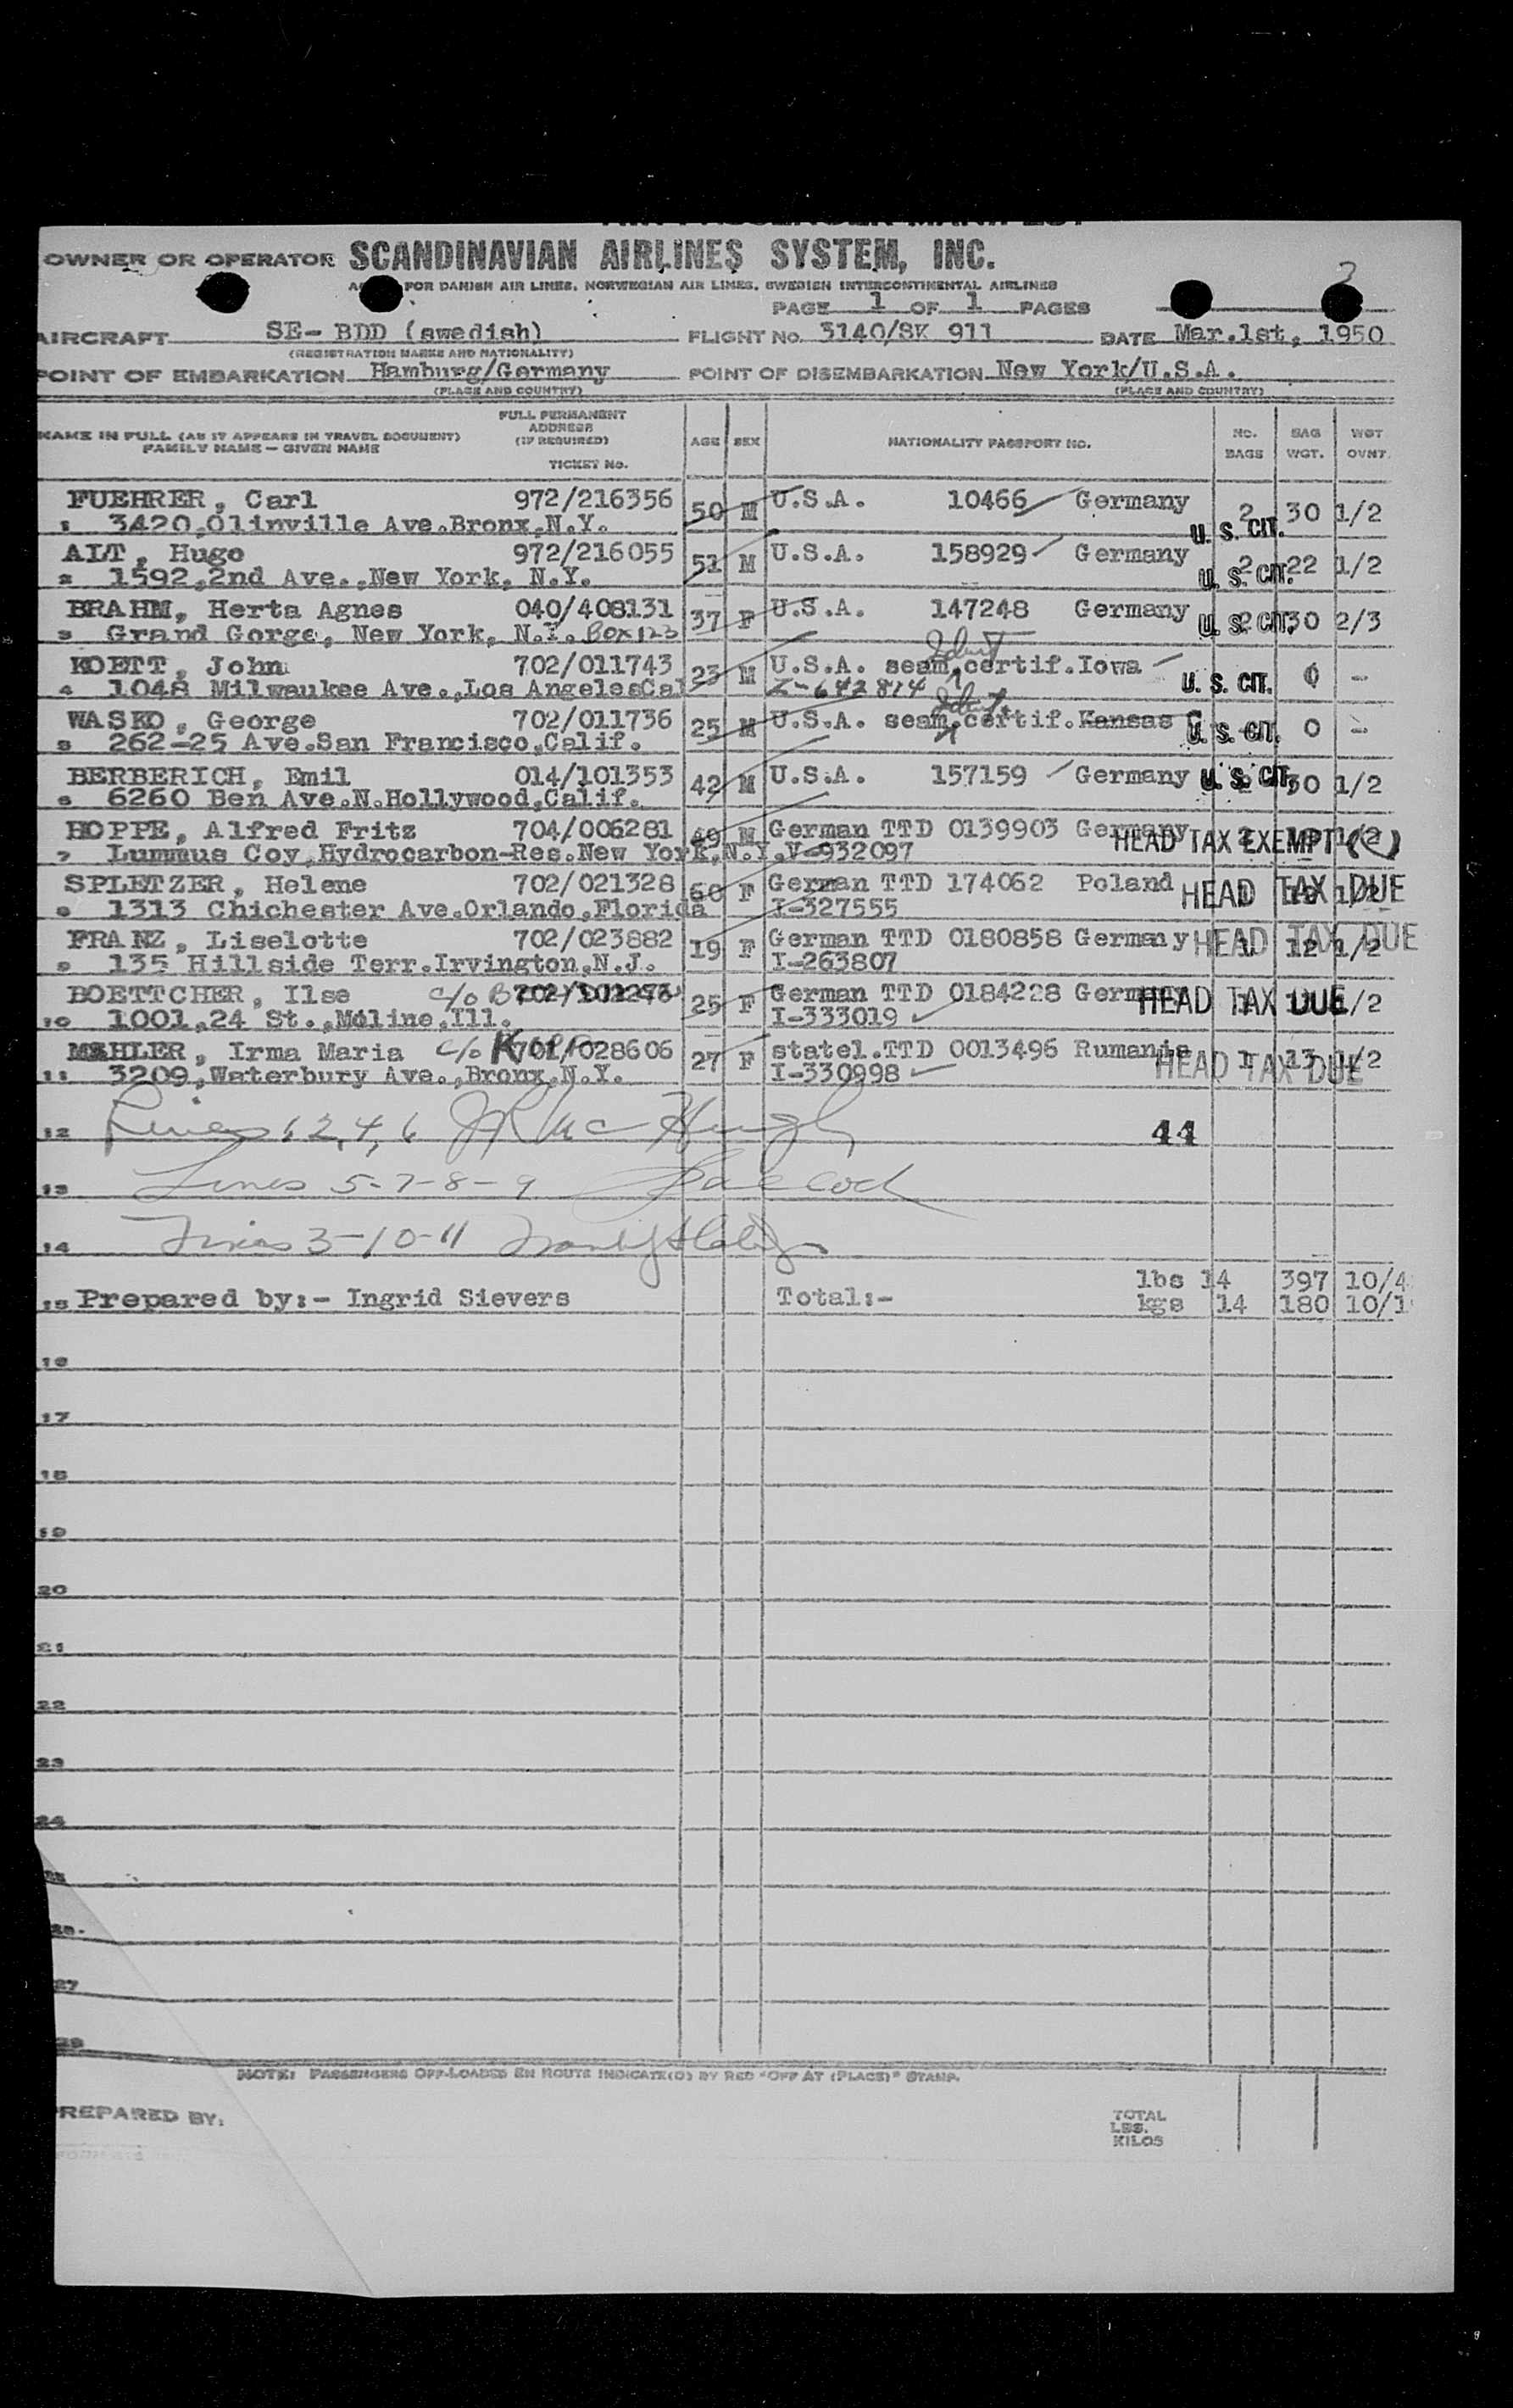 OWNER OR OPERATOR SCANDINAVIAN AIRLINES SYSTEM, INC.
FOR DANISH AIR LINES, NORWEGIAN AIR LINES, SWEDISH INTERCONTINENTAL AIRLINES
PAGE 1 OF 1 PAGES
AIRCRAFT SE- BDD (swedish) FLIGHT No. 3140/SK 911 DATE Mar.1st, 1950
(REGISTRATION MARKS AND NATIONALITY)
POINT OF EMBARKATION Hamburg/Germany POINT OF DISEMBARKATION New York/U.S.A.
(PLACE AND COUNTRY) (PLACE AND COUNTRY)
NAME IN FULL (AS IT APPEARS IN TRAVEL DOCUMENT) FULL PERMANENT ADDRESS (IF REQUIRED) AGE SEX NATIONALITY PASSPORT NO. No. BAGS BAG WGT. WGT OVNT.
FAMILY NAME — GIVEN NAME TICKET No.
FUEHRER, Carl 972/216356 50 M U.S.A. 10466 Germany 2 30 1/2
1 3420,Olinville Ave.Bronx,N.Y. U. S. CIT.
ALT, Hugo 972/216055 51 M U.S.A. 158929 Germany 2 22 1/2
2 1592,2nd Ave.,New York, N.Y. U. S. CIT.
BRAHM, Herta Agnes 040/408131 37 F U.S.A. 147248 Germany U. S. CIT. 2 30 2/3
3 Grand Gorge, New York, N.Y. Box 123
KOETT, John 702/011743 23 M U.S.A. seam. Ident certif.Iowa U. S. CIT. 0 -
4 1048 Milwaukee Ave.,Los AngelesCal Z-642814
WASKO, George 702/011736 25 M U.S.A. seam. Ident. certif.Kansas U. S. CIT. 0 -
5 262-25 Ave.San Francisco,Calif.
BERBERICH, Emil 014/101353 42 M U.S.A. 157159 Germany U. S. CIT. 2 30 1/2
6 6260 Ben Ave.N.Hollywood,Calif.
HOPPE, Alfred Fritz 704/006281 49 M German TTD 0139903 Germany HEAD TAX EXEMPT
7 Lummus Coy,Hydrocarbon-Res.New York,N.Y.V-932097
SPLETZER, Helene 702/021328 60 F German TTD 174062 Poland HEAD TAX DUE
8 1313 Chichester Ave.Orlando,Florida I-327555
FRANZ, Liselotte 702/023882 19 F German TTD 0180858 Germany HEAD TAX DUE 1 12 1/2
9 135 Hillside Terr.Irvington,N.J. I-263807
BOETTCHER, Ilse c/o 25 F German TTD 0184228 Germany HEAD TAX DUE 1/2
10 1001,24 St.,Moline,Ill. I-333019
MAHLER, Irma Maria c/o 701/028606 27 F statel.TTD 0013496 Rumania HEAD TAX DUE 1 13 1/2
11 3209,Waterbury Ave.,Bronx,N.Y. I-330998
12 Lines 1, 2, 4, 6 44
13 Lines 5-7-8-9
14 Lines 3-10-11
lbs 14 397 10/4
15 Prepared by:- Ingrid Sievers Total:- kgs 14 180 10/1
16
17
18
19
20
21
22
23
24
25
26
27
28
NOTE: PASSENGERS OFF-LOADED EN ROUTE INDICATE(D) BY RED "OFF AT (PLACE)" STAMP.
PREPARED BY: TOTAL
LBS.
KILOS